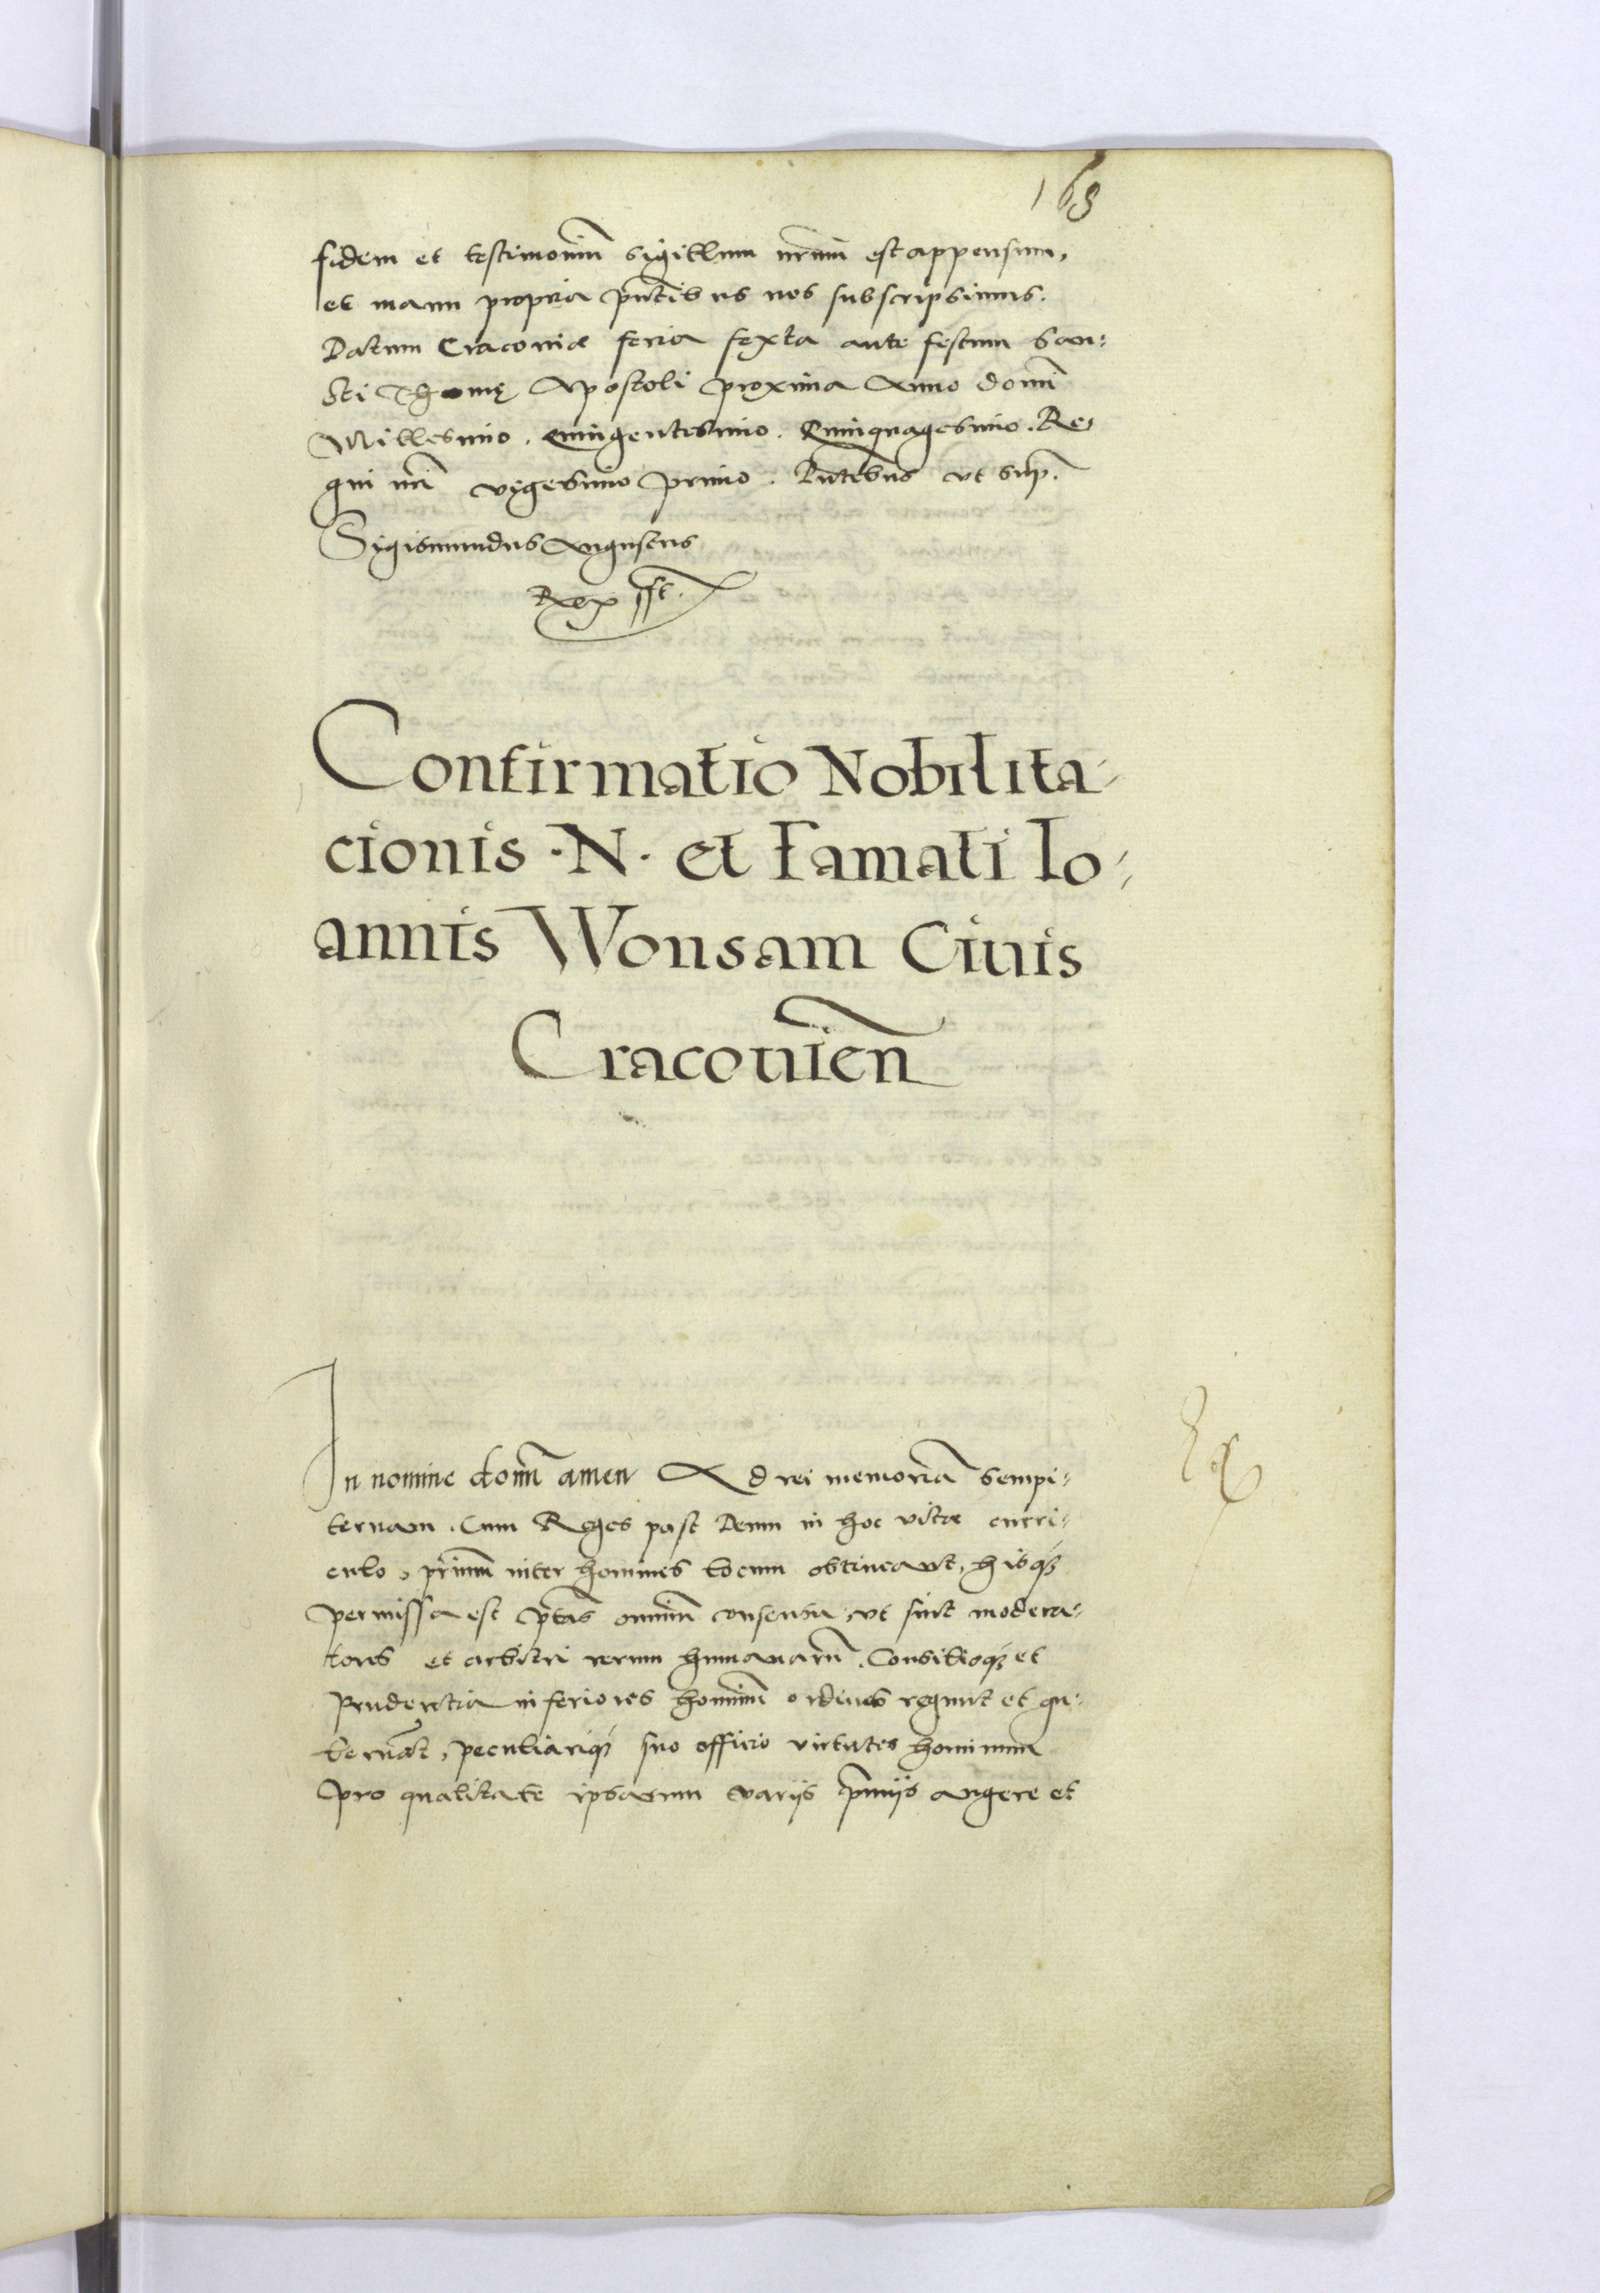 168
fidem et testimoniū sigillum nrūm est appensum,
et manu propria pntibus nos subscripsimus.
Datum Cracoviæ feria sexta ante festum San:
cti Thomę Apostoli proxima Anno domī
Millesimo. Quingentesimo. Quinquagesimo. Re:
gni nrī vigesimo primo. Pntibus vt sup.
Sigismundus Augustus
Rex sst.
Confirmatio Nobilita:
cionis .N. et Famati Io:
annis Wonsam Ciuis
Cracouien̄
In nomine domī amen Ad rei memoriā sempi:
ternam. Cum Reges post Deum in hoc vitæ curri:
culo, primū inter homines locum obtineant, hisq;
permissa est ptās omniū consensu, vt sint modera:
tores et arbitri rerum humanarū. Consilioq; et
prudentia inferiores hominū ordines regunt et gu:
bernāt, peculiariq; suo officio virtutes hominum
pro qualitate ipsarum varijs pmijs augere et